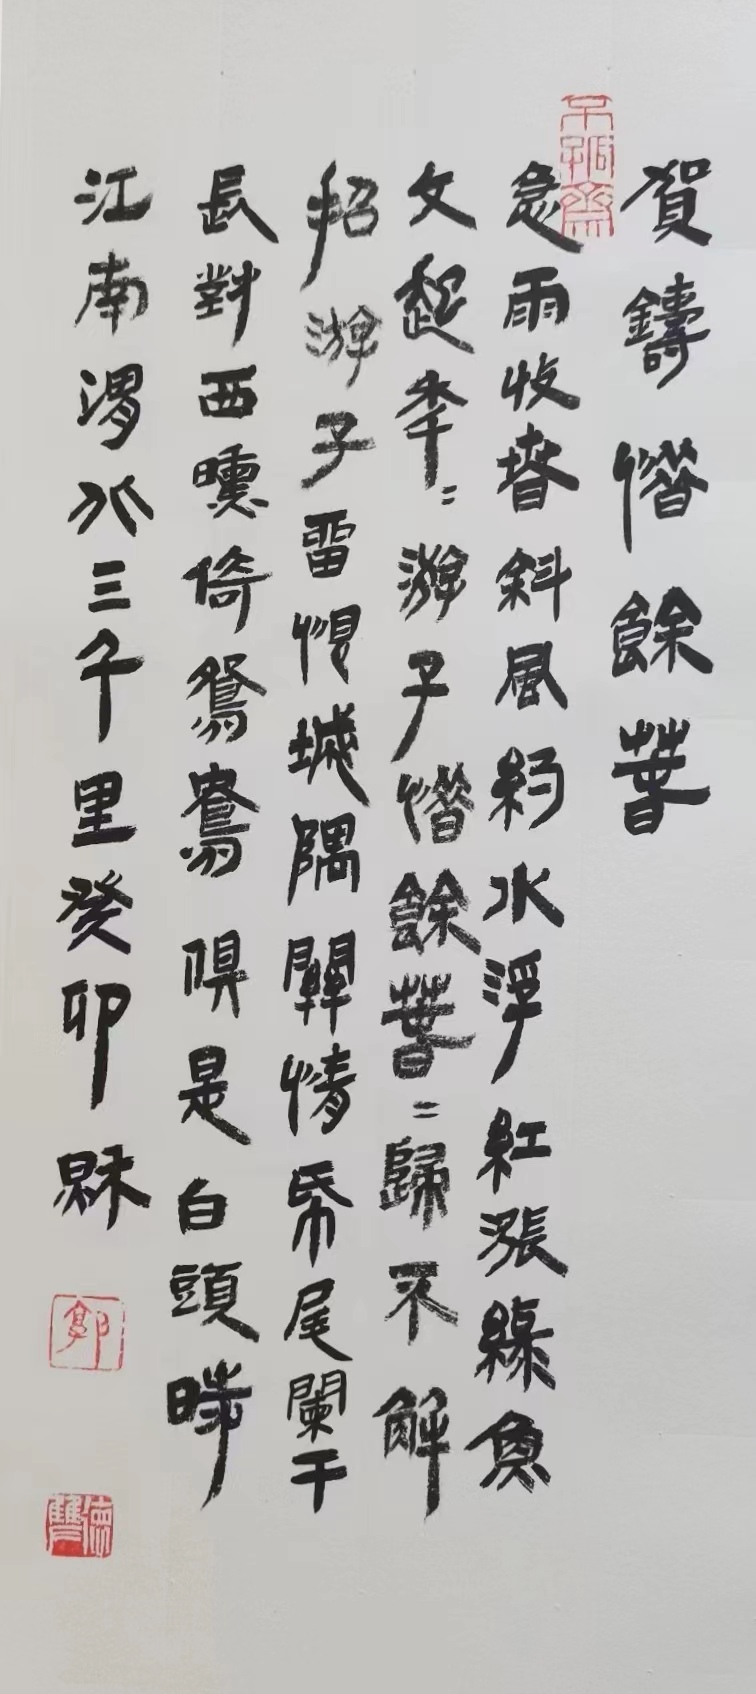 賀鑄惜餘春
急雨收春斜風約水浮紅漲綠魚
文起年〻游子惜餘春〻歸不解
招游子留恨城隅關情帋尾闌干
長對西曛倚鴛鴦俱是白頭時
江南渭北三千里癸卯秋
郭